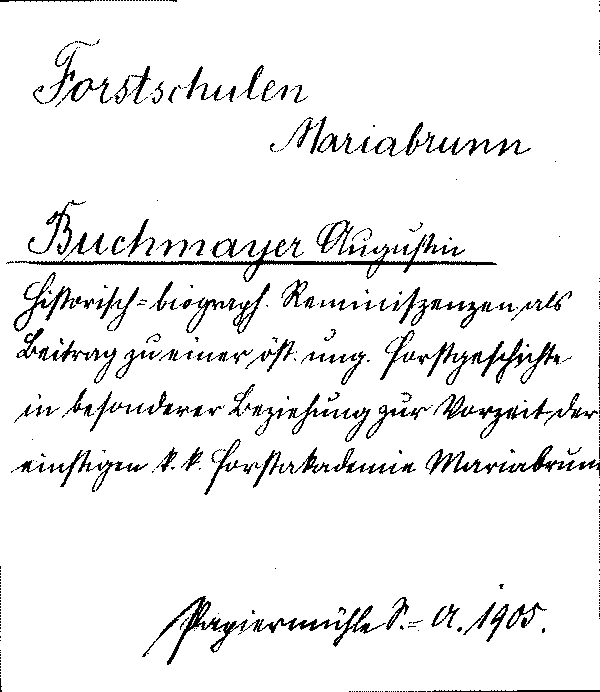 Forstschulen
Mariabrunn
Buchmayer Augustin
Historisch=biograph. Reminiszenzen als
Beitrag zu einer öst. ung. Forstgeschichte
in besonderer Beziehung zur Vorzeit der
einstigen k. k. Forstakademie Mariabrunn
Papiermühle S.=A. 1905.